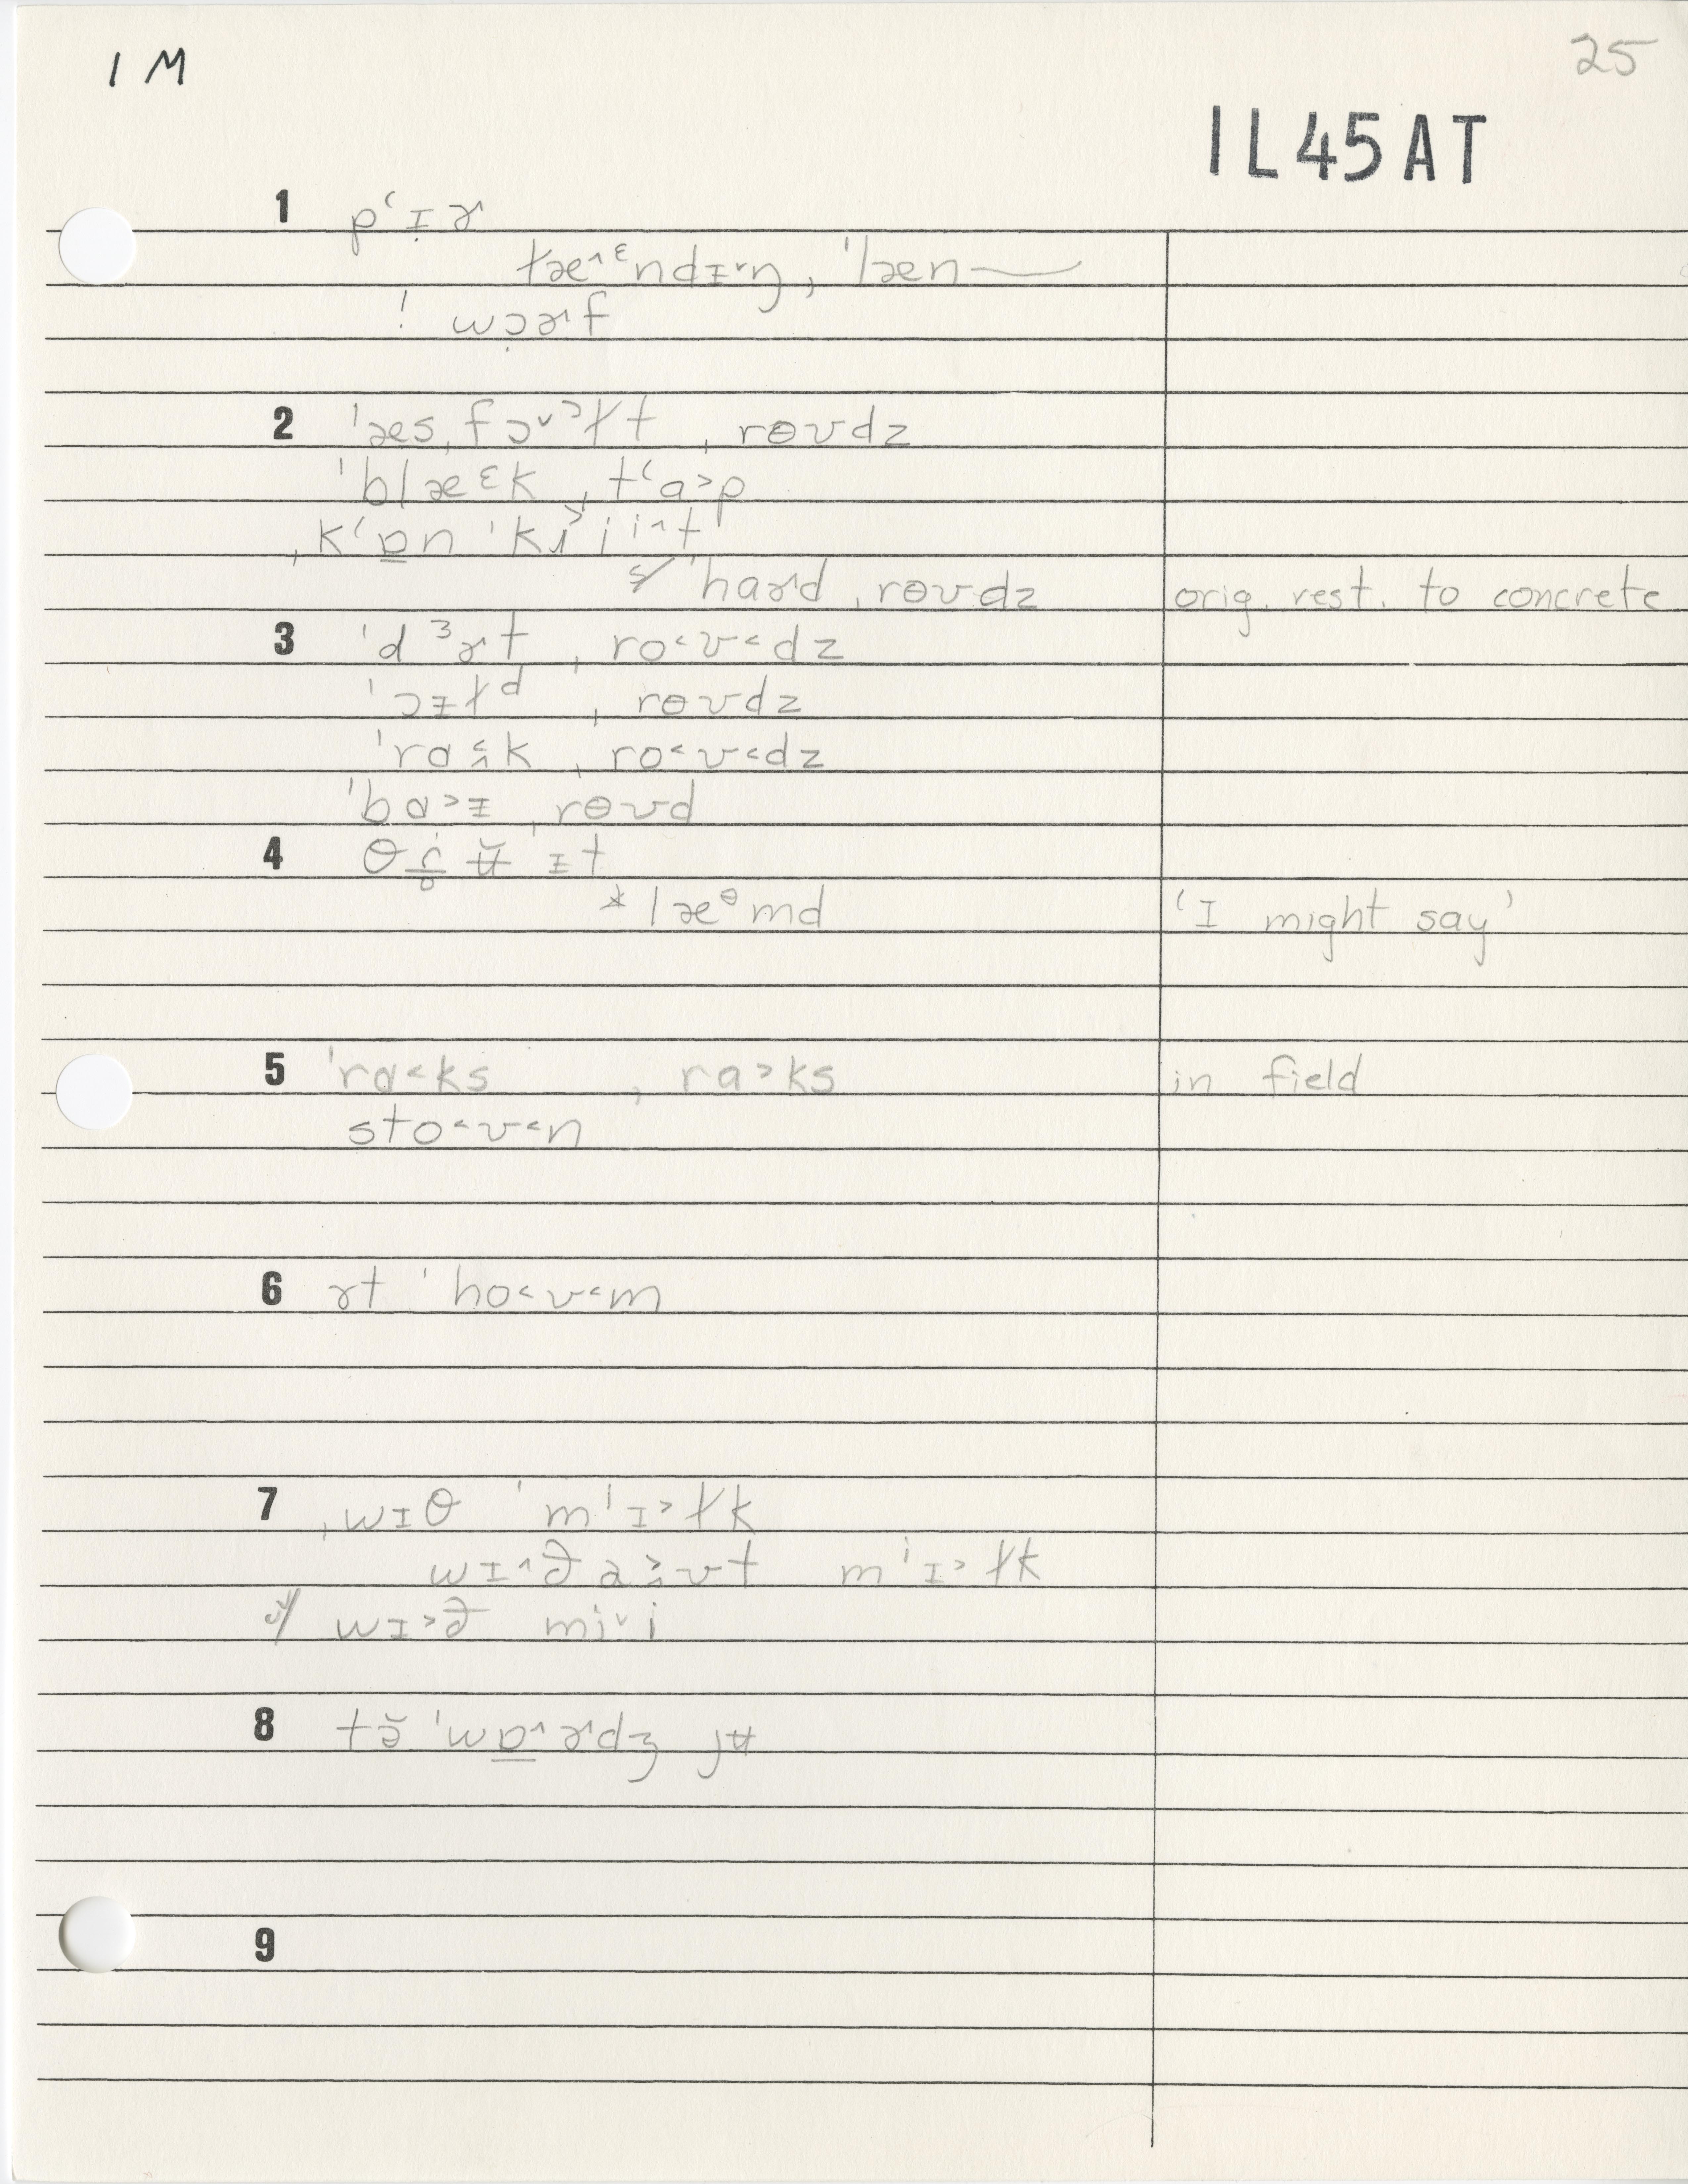 1 M
25
1L45AT
1 pʻɪ̣ɚ
læ˄ᵋndɪ˅ŋ, ˈlæn—
! wɔ̣ɚf
2 ˈæsˌfɔ˅ᵓɫt ˌrɵʊdz
ˈblæɛk ˌtʻɑ˃p
ˌkʻɒ̱n ˈkri˃i˄t
ˈhaɚd ˌrɵʊdz orig. rest. to concrete
3 ˈdɜɚt ˌro˂ʊ˂dz
ˈɔɪɫd ˌrɵʊdz
ˈrɑ˂k ˌro˂ʊ˂dz
ˈbɑ˃ɪ ˌrɵʊd
4 ʉ̆ ɪt
* læᶿmd 'I might say'
5 ˈrɑ˂ks ˌra˃ks in field
sto˂ʊ˂n
6 ɚt ˈho˂ʊ˂m
7 ˌwɪθ ˈmˈɪ˃ɫk
wɪ˄ða˃ʊt mˈɪ˃ɫk
wɪ˃ð mi˅i
8 tə̆ ˈwɒ̱˄ɚdʒ jʉ
9